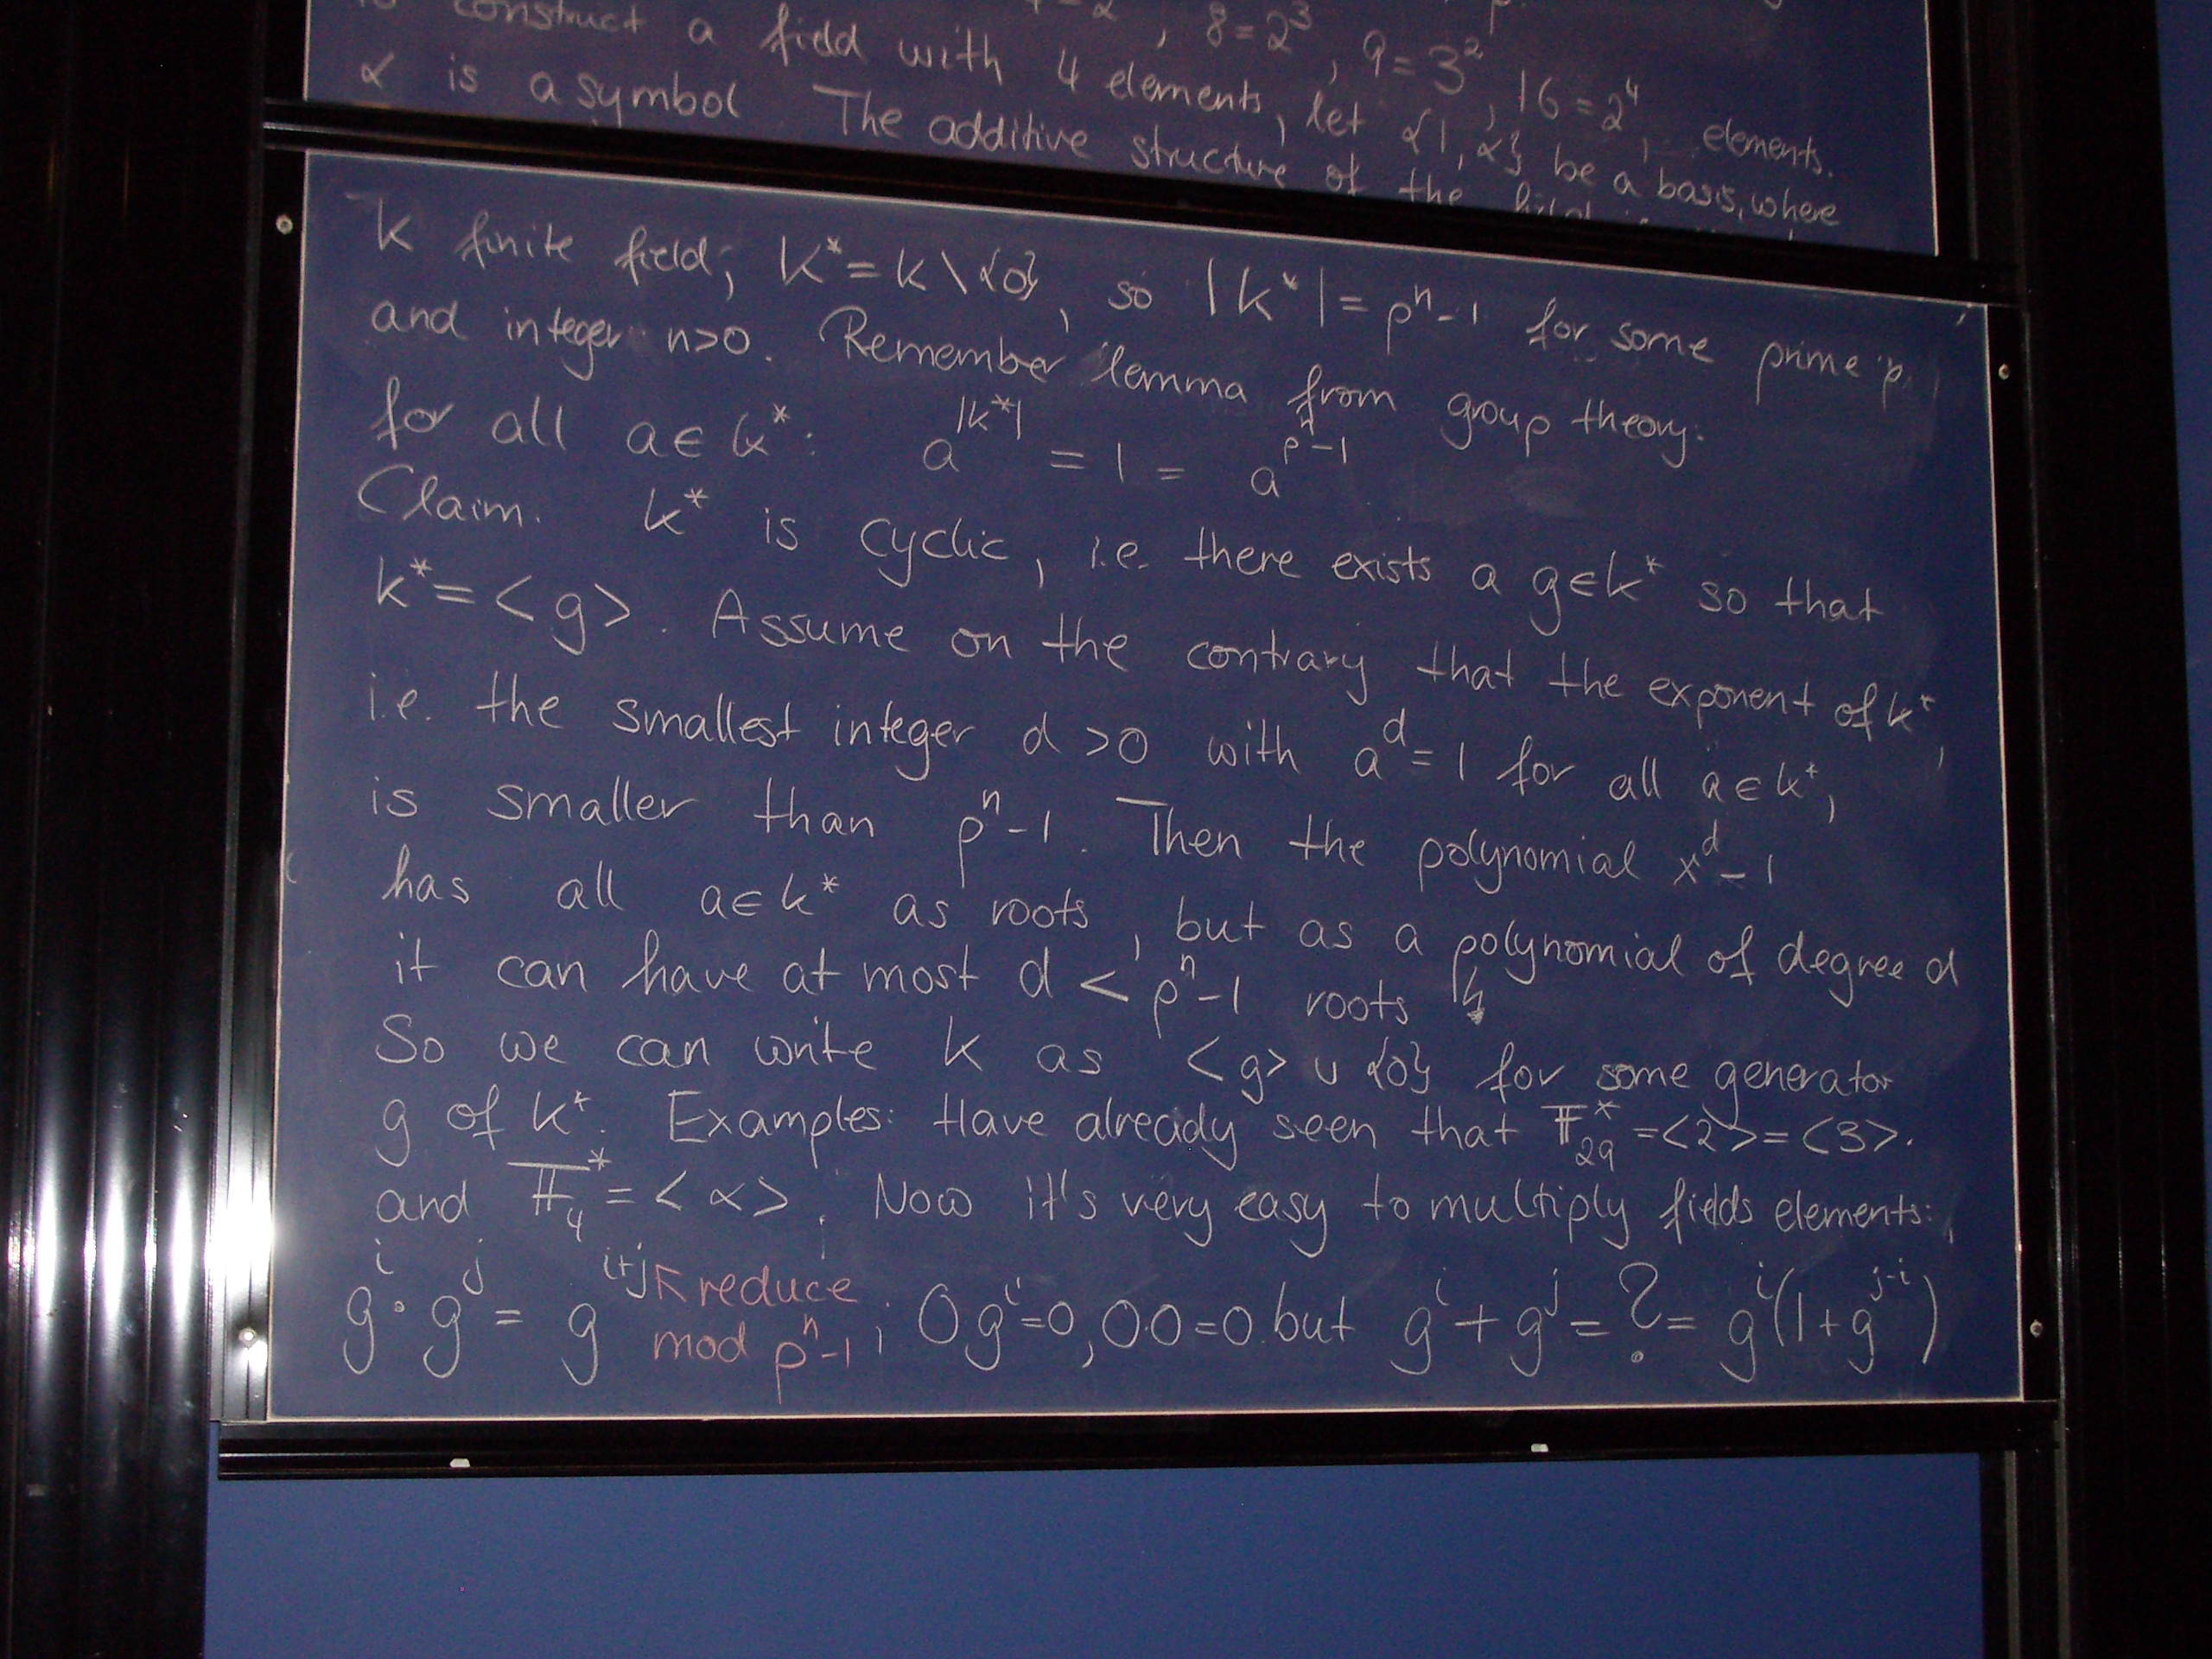 construct a field with 4 elements, let {1, α} be a basis, where
, 8 = 2³, 9 = 3², 16 = 2⁴, elements.
α is a symbol The additive structure of the
K finite field; K* = K \ {0}, so |K*| = pⁿ-1 for some prime p
and integer n>0. Remember lemma from group theory:
for all a ∈ K*: a^|K*| = 1 = a^(pⁿ-1)
Claim. K* is cyclic, i.e. there exists a g∈K* so that
K* = <g>. Assume on the contrary that the exponent of K*,
i.e. the smallest integer d >0 with a^d = 1 for all a ∈ K*,
is smaller than pⁿ-1. Then the polynomial x^d - 1
has all a∈K* as roots, but as a polynomial of degree d
it can have at most d < pⁿ-1 roots ↯
So we can write K as <g> ∪ {0} for some generator
g of K*. Examples: Have already seen that F₂₉* = <2> = <3>.
and F₄* = <α>. Now it's very easy to multiply fields elements:
g^i · g^j = g^(i+j) ↖ reduce mod pⁿ-1 ; 0 g^i = 0, 0·0 = 0. but g^i + g^j = ? = g^i(1+g^(j-i))